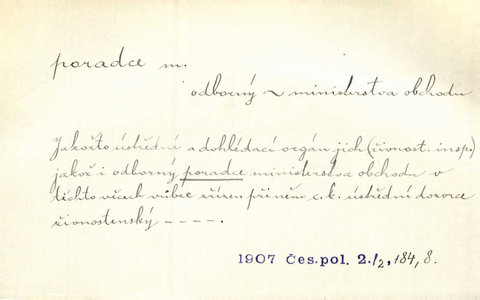 poradce m.
odborný ~ ministerstva obchodu
Jakožto ústřední a dohlédací orgán jich (živnost. insp.)
jakož i odborný poradce ministerstva obchodu v
těchto věcech vůbec zřízen při něm c. k. ústřední dozorce
živnostenský – – – –.
1907 Čes.pol. 2./2, 184, 8.